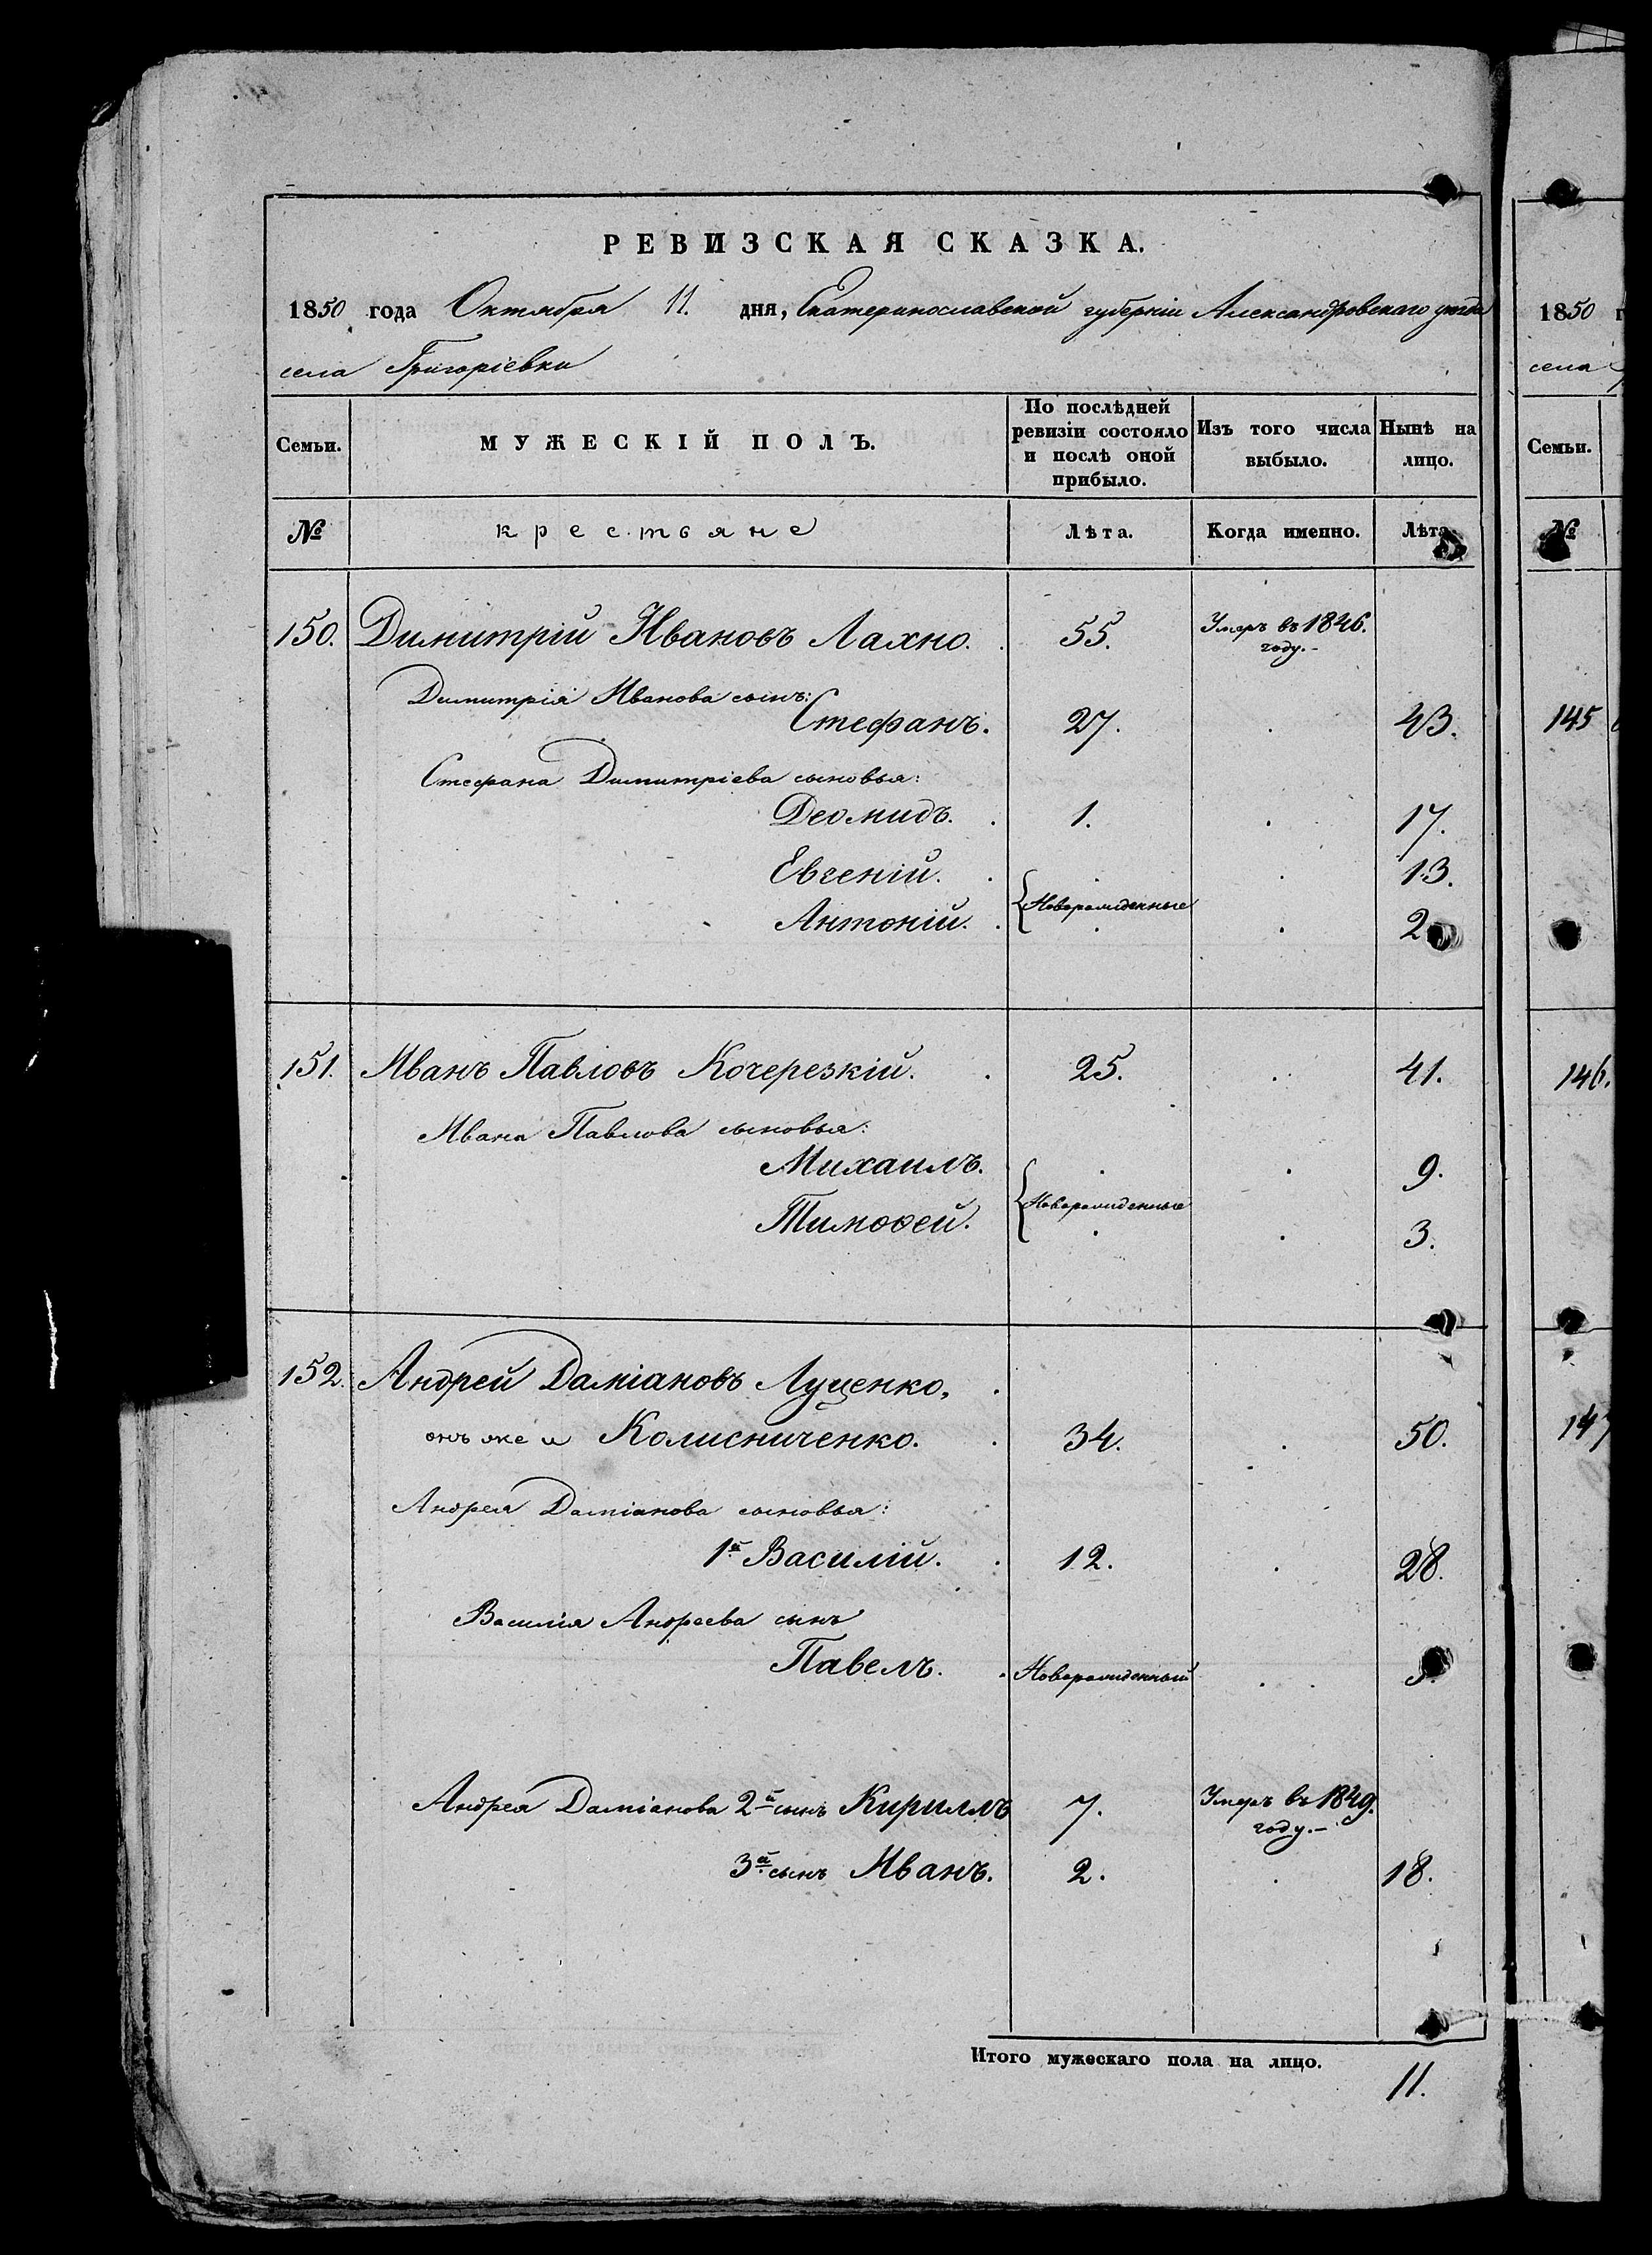 РЕВИЗСКАЯ СКАЗКА.
1850 года Октября 11. дня, Екатеринославской губерніи Александровскаго уѣзда
села Григоріевки
Семьи. МУЖЕСКІЙ ПОЛЪ. По послѣдней ревизіи состояло и послѣ оной прибыло. Изъ того числа выбыло. Нынѣ на лицо.
№ крестьяне Лѣта. Когда именно. Лѣта
150. Димитрій Ивановъ Лахно. 55. Умеръ въ 1846. году.-
Димитрія Иванова сынъ:
Стефанъ. 27. 43.
Стефана Димитріева сыновья:
Деомидъ. 1. 17.
Евгеній. 13.
Новорожденные
Антоній. 2
151. Иванъ Павловъ Кочерезкій. 25. 41.
Ивана Павлова сыновья:
Михаилъ. 9.
Новорожденные
Тимоѳей. 3.
152. Андрей Даміановъ Луценко,
онъ же и Колисниченко. 34. 50.
Андрея Даміанова сыновья:
1й Василій. 12. 28.
Василія Андреева сынъ
Павелъ. Новорожденный
Андрея Даміанова 2й сынъ Кириллъ 7. Умеръ въ 1849. году.-
3й сынъ Иванъ. 2. 18.
Итого мужескаго пола на лицо. 11.
1850
села
Семьи.
№
145
146.
147